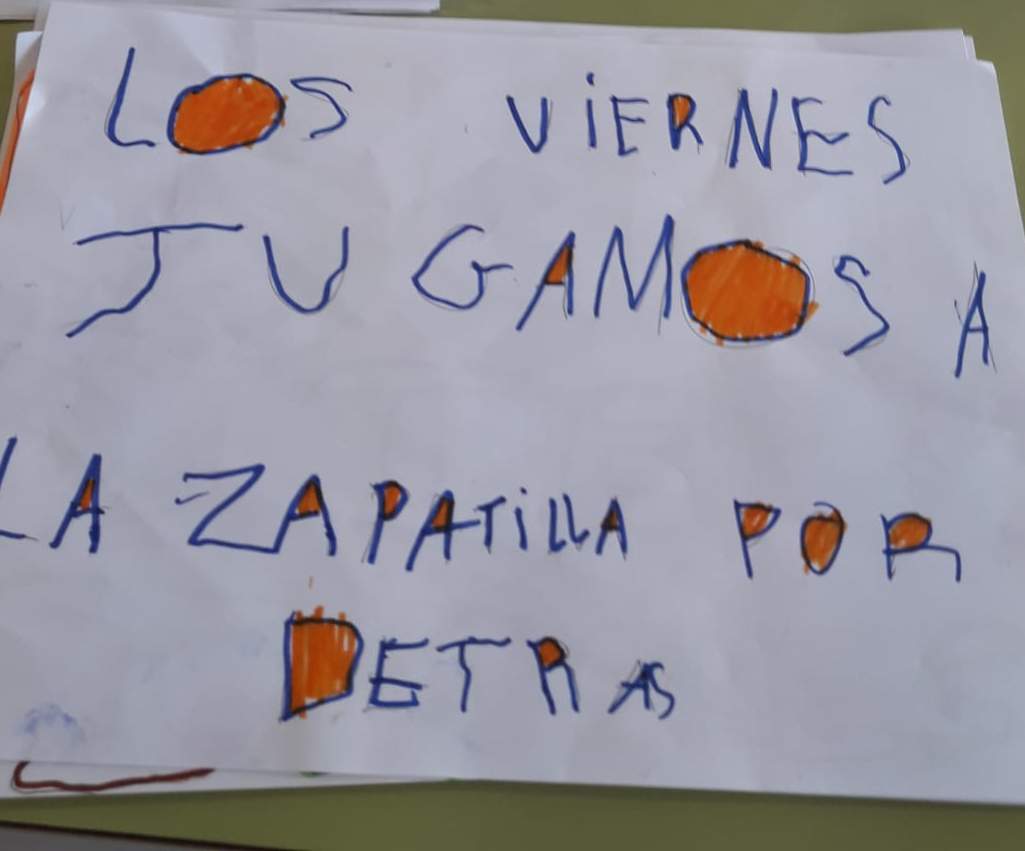 LOS VIERNES
JUGAMOS A
LA ZAPATILLA POR
DETRAS